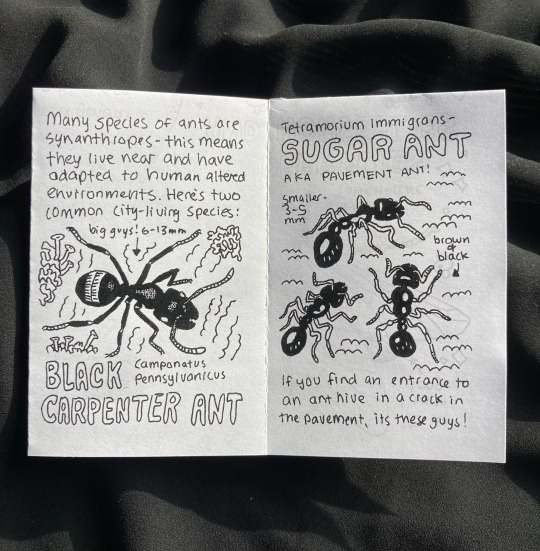 Many species of ants are
synanthropes - this means
they live near and have
adapted to human altered
environments. Here's two
common city-living species:
big guys! 6-13mm
BLACK
Camponatus
Pennsylvanicus
CARPENTER ANT
Tetramorium immigrans-
SUGAR ANT
AKA PAVEMENT ANT!
smaller-
3-5
mm
brown
&
black
If you find an entrance to
an ant hive in a crack in
the pavement, its these guys!